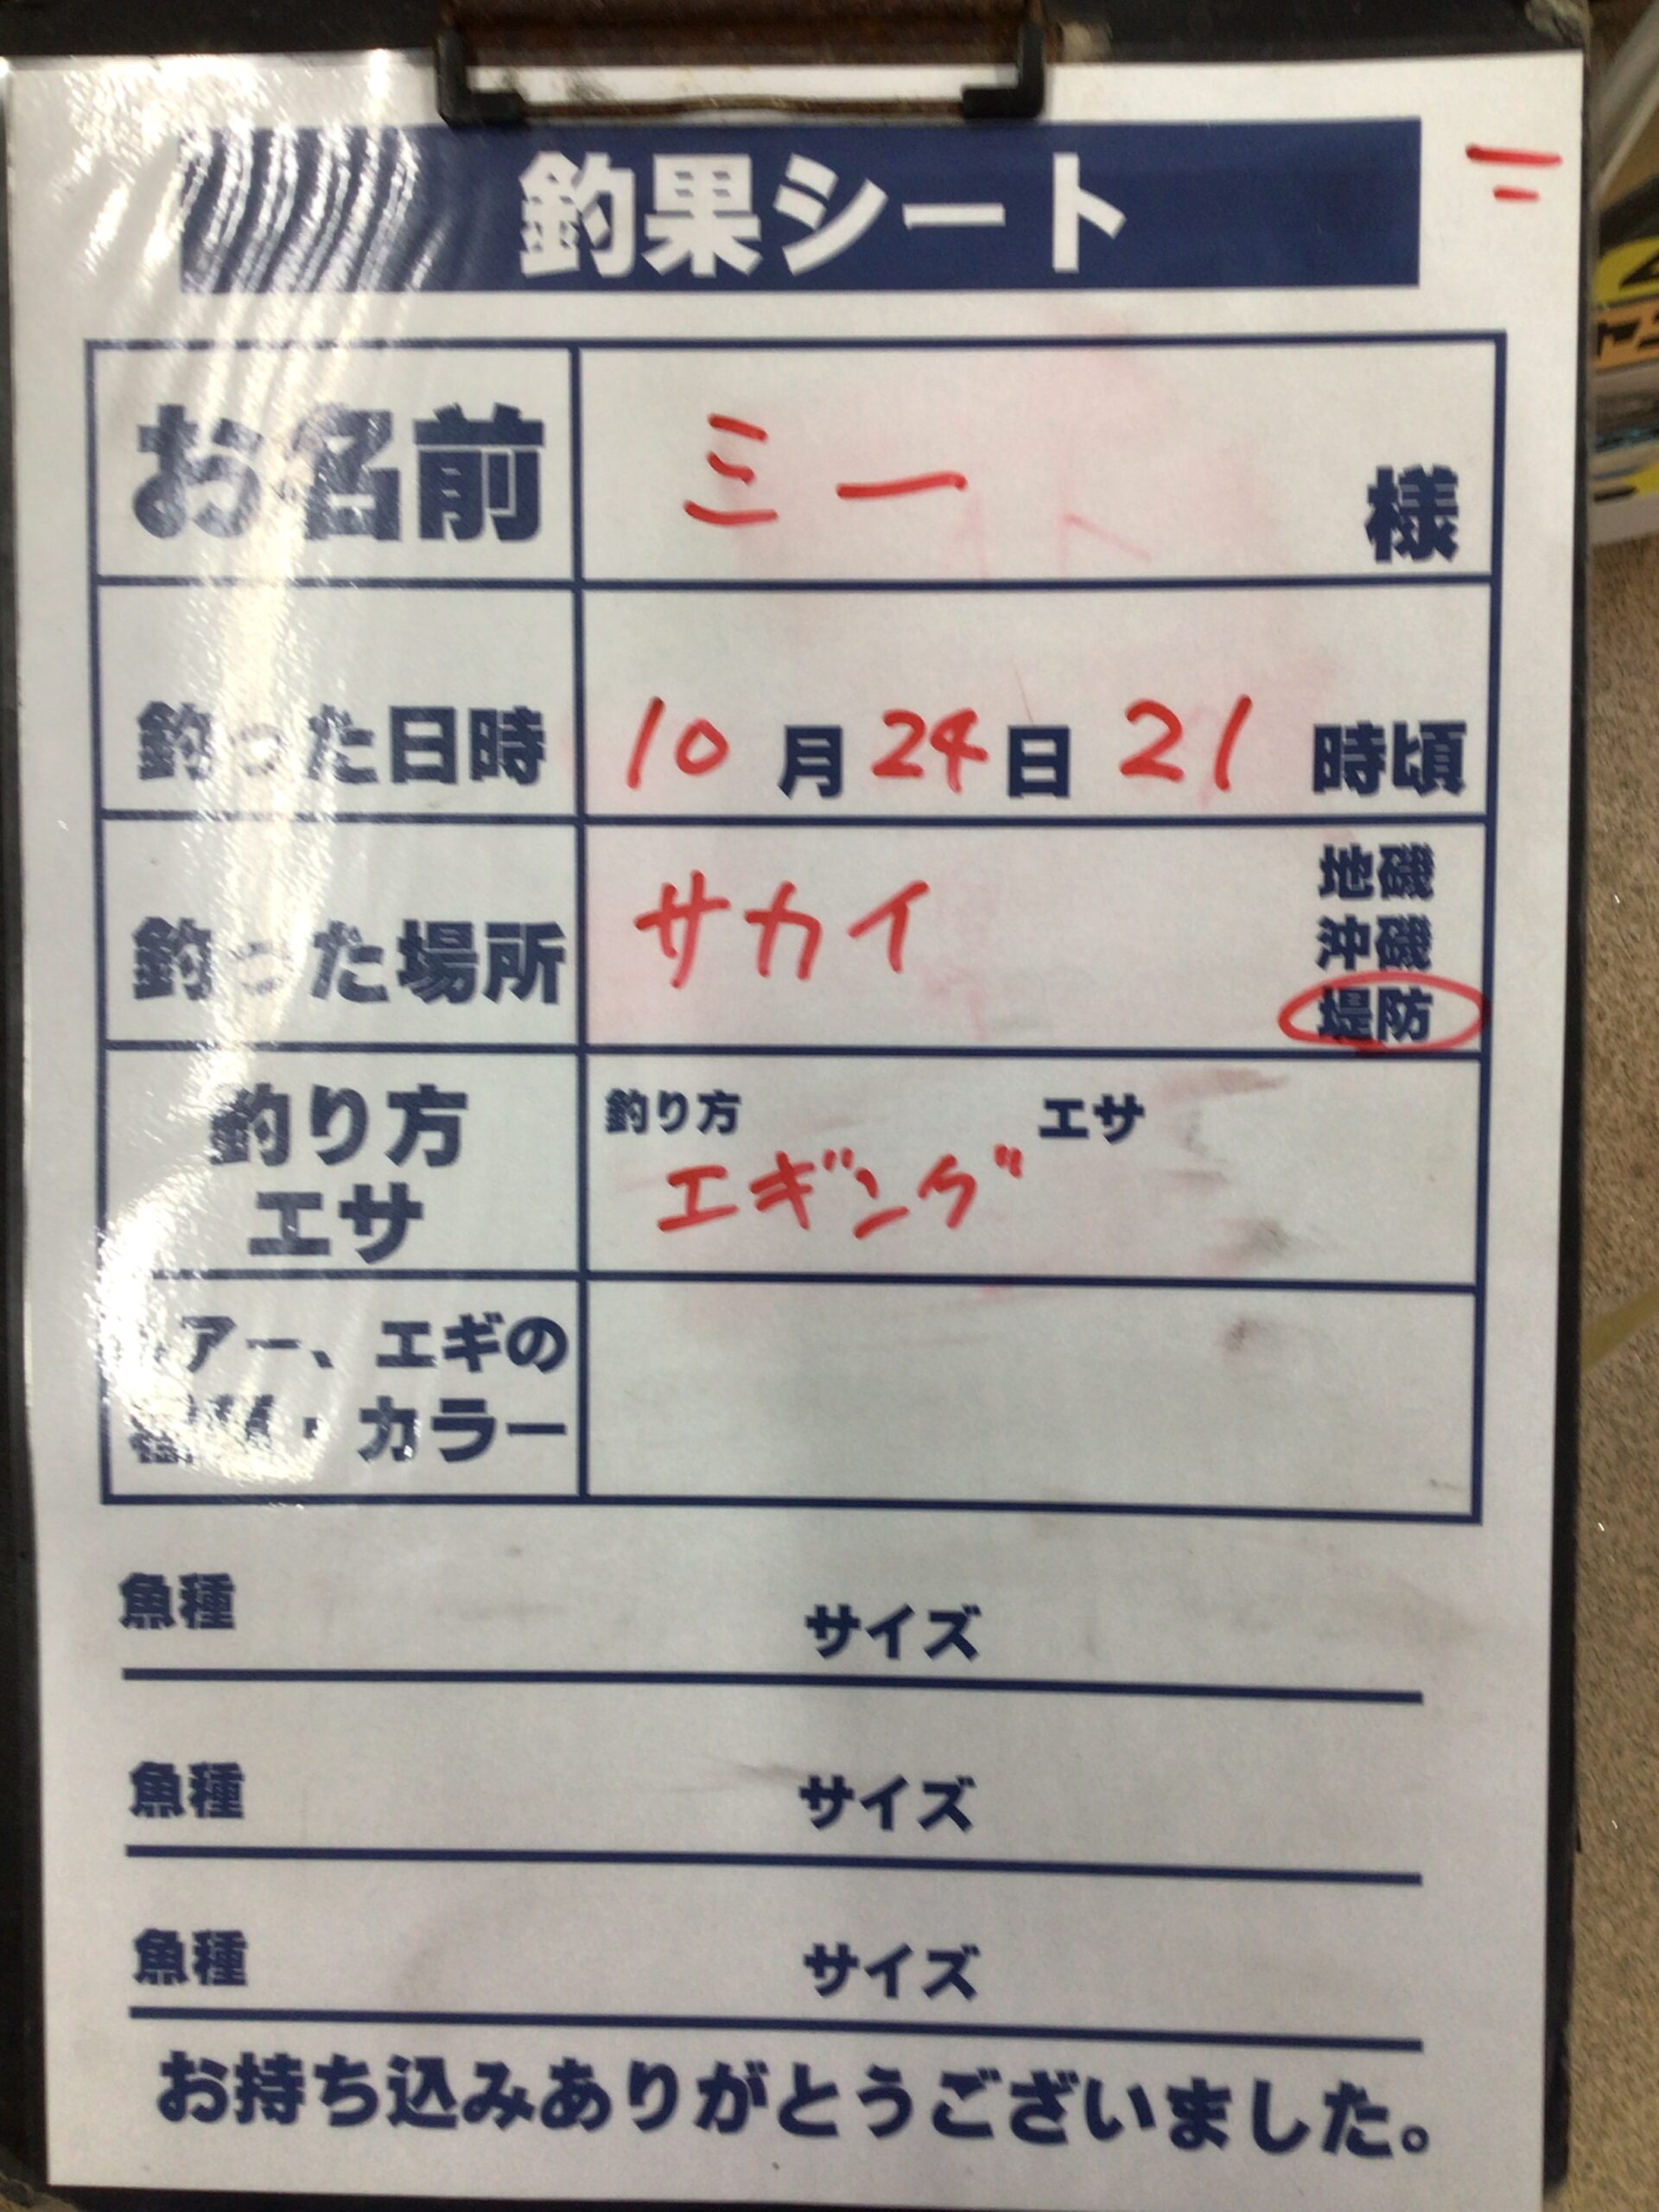 釣果シート
お名前 ミー 様
釣った日時 10月24日 21時頃
釣った場所 サカイ 地磯
沖磯
堤防
釣り方
エサ
釣り方 エサ
エギング
アー、エギの
カラー
魚種 サイズ
魚種 サイズ
魚種 サイズ
お持ち込みありがとうございました。